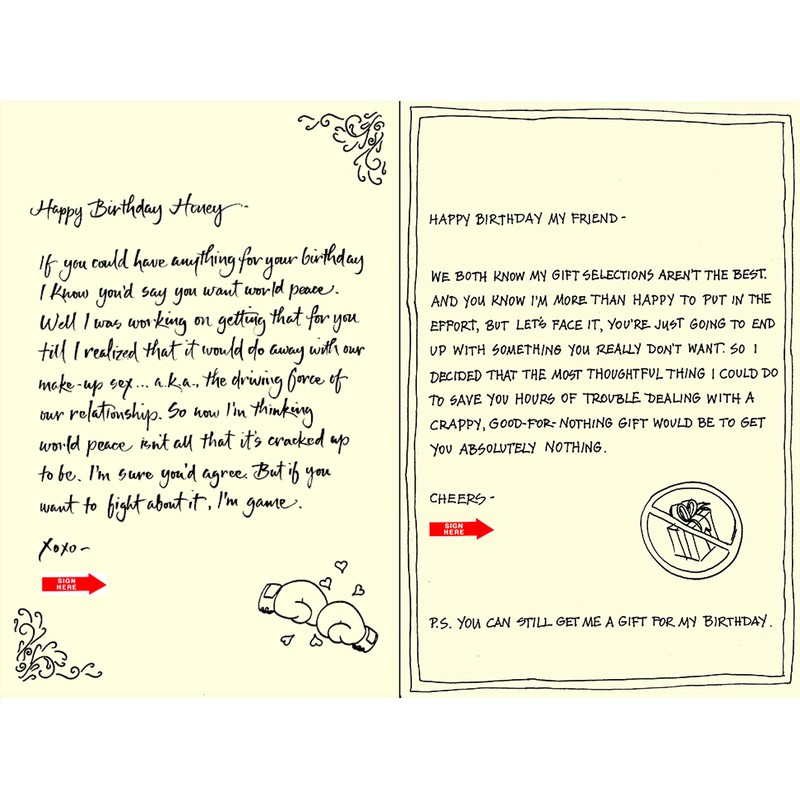 Happy Birthday Honey -
If you could have anything for your birthday
I know you'd say you want world peace.
Well I was working on getting that for you
till I realized that it would do away with our
make-up sex... a.k.a., the driving force of
our relationship. So now I'm thinking
world peace isn't all that it's cracked up
to be. I'm sure you'd agree. But if you
want to fight about it, I'm game.
xoxo -
SIGN
HERE
HAPPY BIRTHDAY MY FRIEND -
WE BOTH KNOW MY GIFT SELECTIONS AREN'T THE BEST.
AND YOU KNOW I'M MORE THAN HAPPY TO PUT IN THE
EFFORT, BUT LET'S FACE IT, YOU'RE JUST GOING TO END
UP WITH SOMETHING YOU REALLY DON'T WANT. SO I
DECIDED THAT THE MOST THOUGHTFUL THING I COULD DO
TO SAVE YOU HOURS OF TROUBLE DEALING WITH A
CRAPPY, GOOD-FOR-NOTHING GIFT WOULD BE TO GET
YOU ABSOLUTELY NOTHING.
CHEERS -
SIGN
HERE
P.S. YOU CAN STILL GET ME A GIFT FOR MY BIRTHDAY.